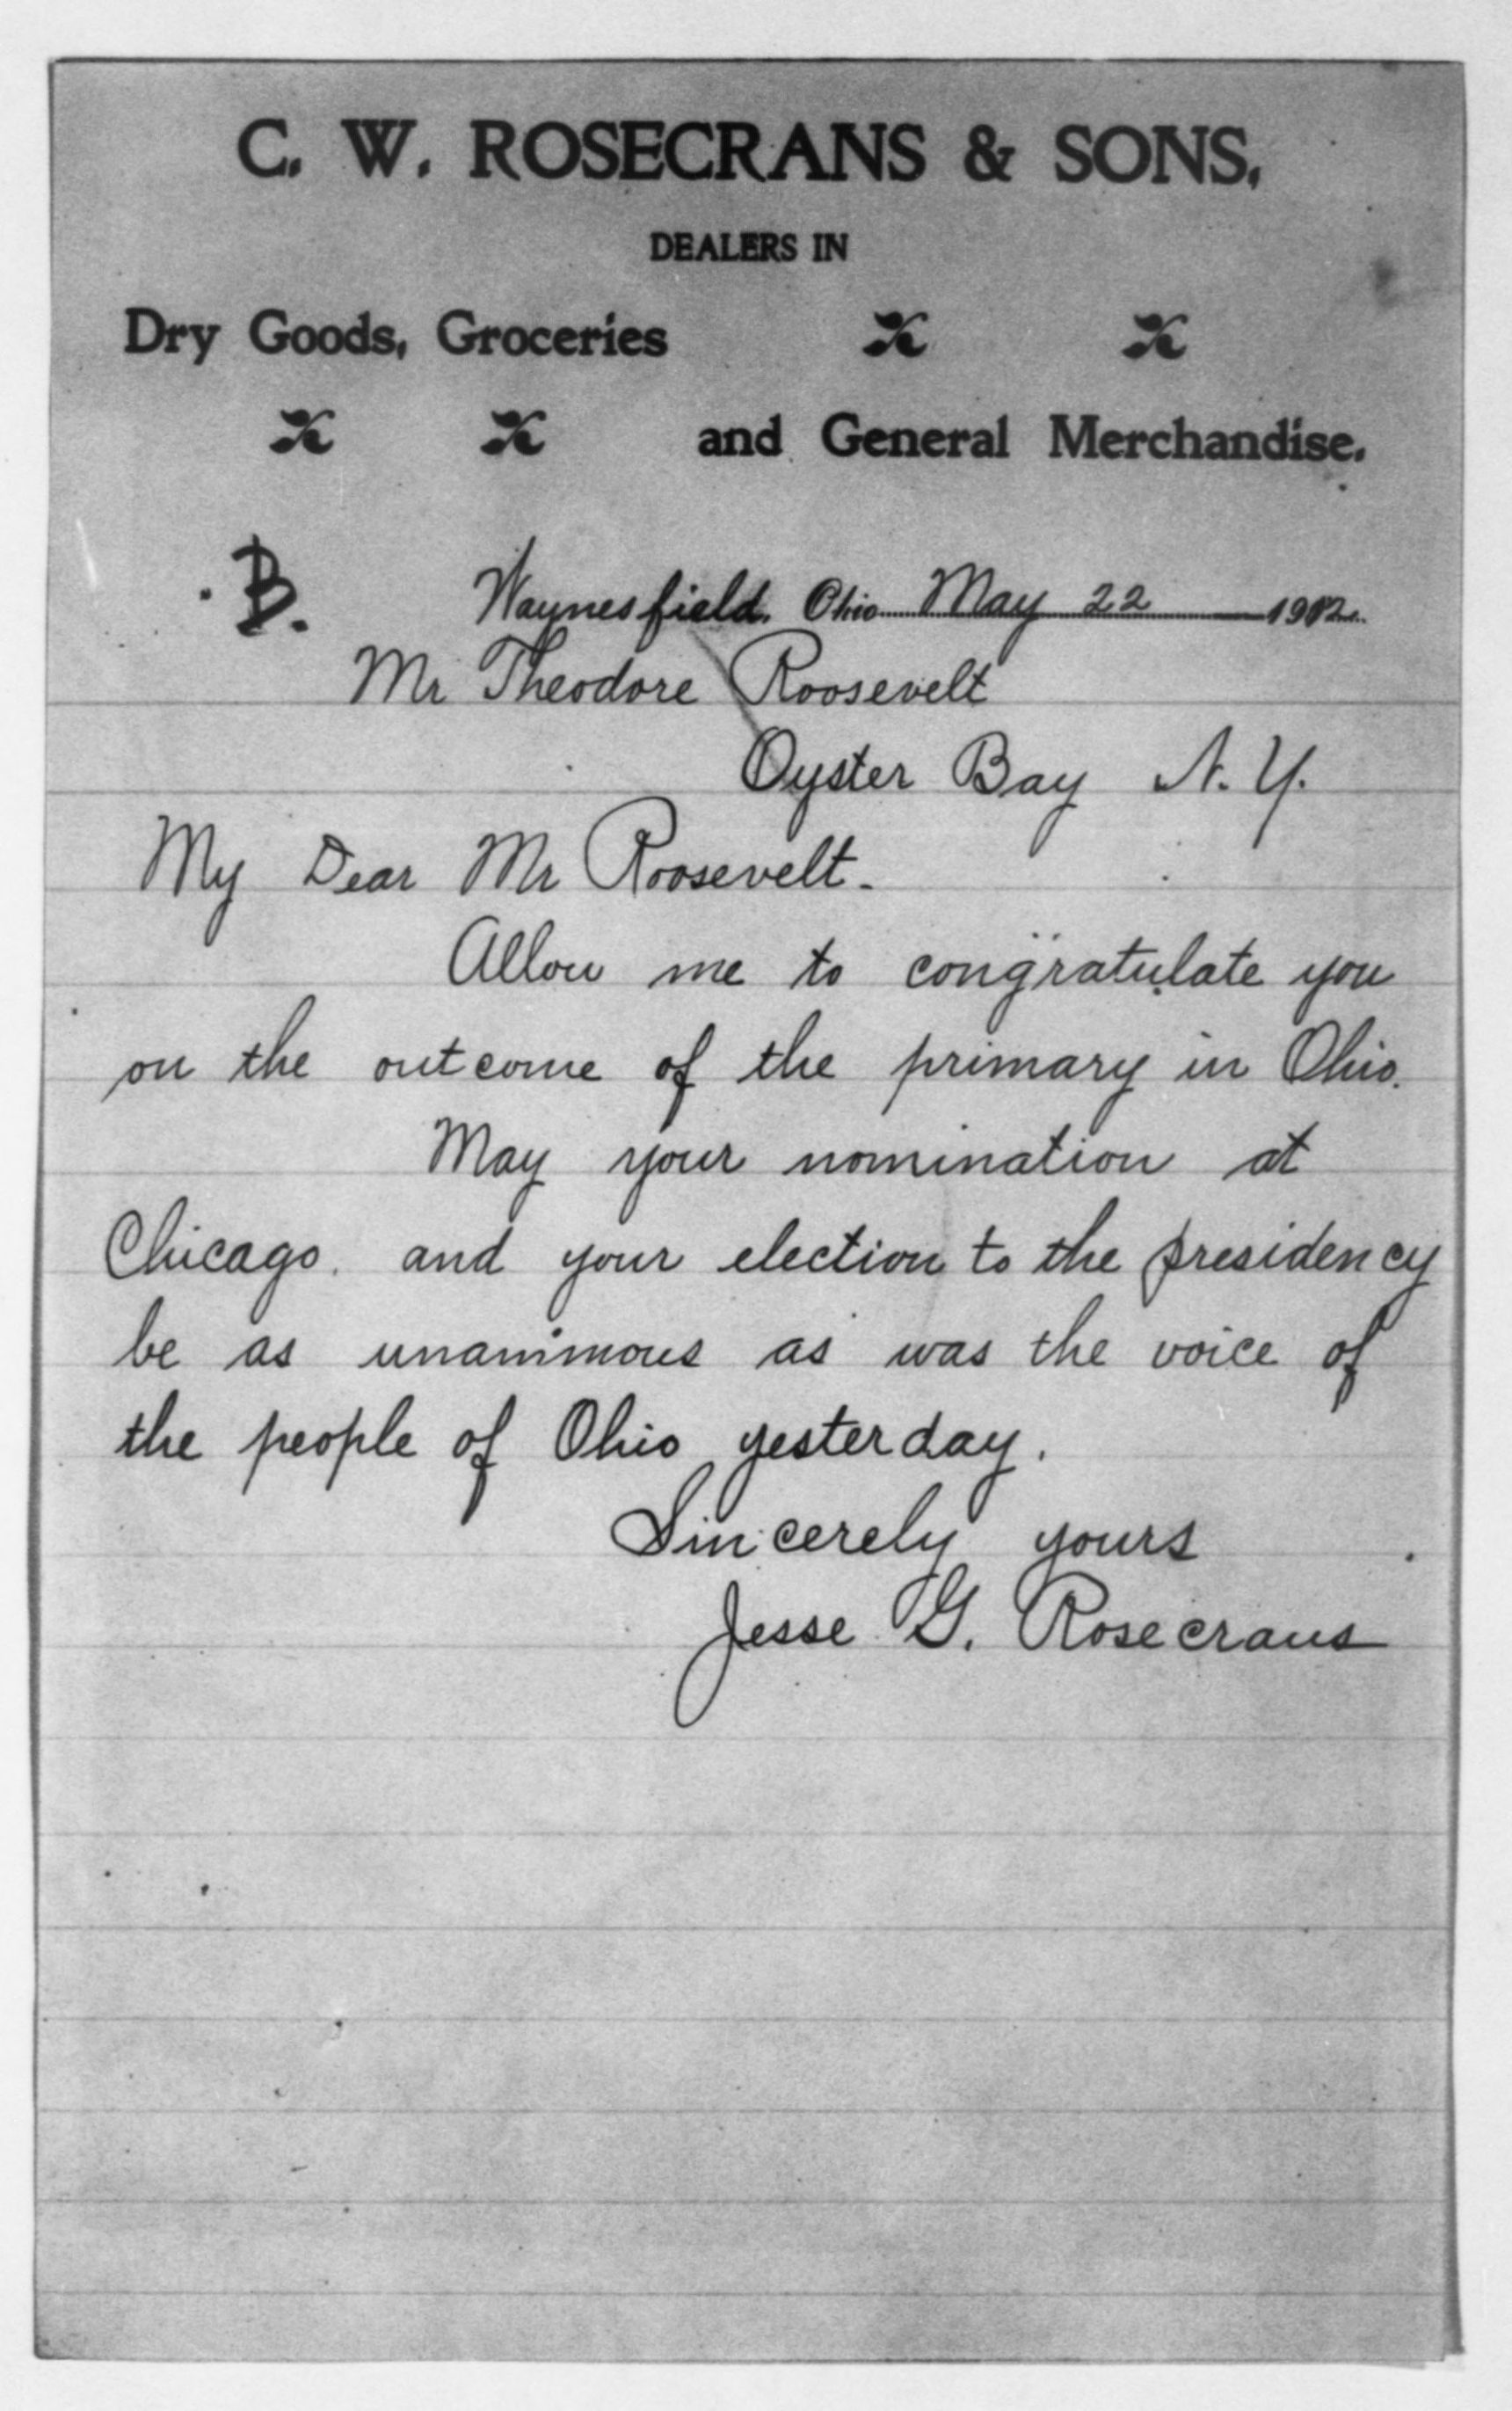 C. W. ROSECRANS & SONS,
DEALERS IN
Dry Goods, Groceries
and General Merchandise.
B.
Waynesfield, Ohio May 22 1912
Mr Theodore Roosevelt
Oyster Bay N. Y.
My Dear Mr Roosevelt.
Allow me to congratulate you
on the outcome of the primary in Ohio.
May your nomination at
Chicago. and your election to the presidency
be as unanimous as was the voice of
the people of Ohio yesterday.
Sincerely yours
Jesse G. Rosecrans